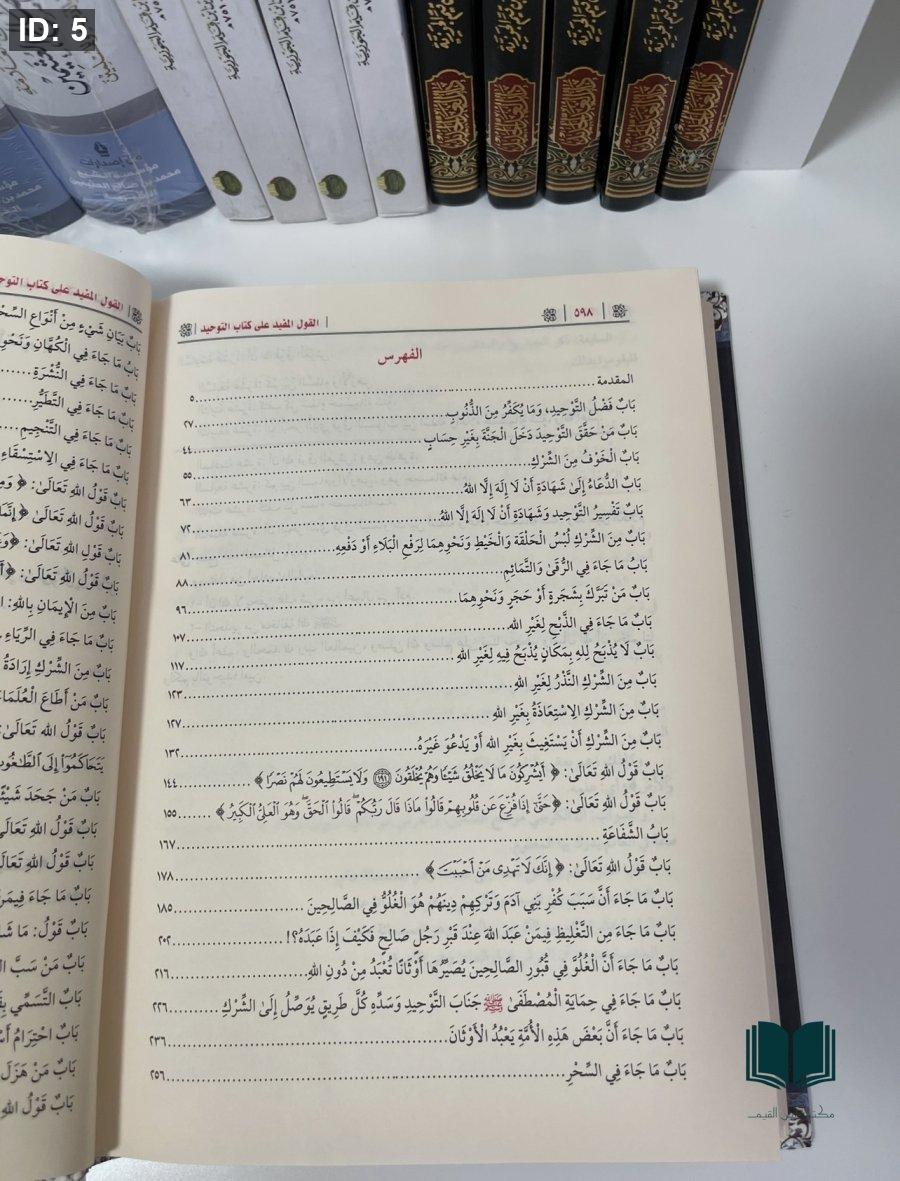 ID: 5
القول المفيد على كتاب التوحيد
٥٩٨
الفهرس
المقدمة ..... ٥
بَابُ فَضْلُ التَّوْحِيدِ، وَمَا يُكَفِّرُ مِنَ الذُّنُوبِ ..... ٢٧
بَابُ مَنْ حَقَّقَ التَّوْحِيدَ دَخَلَ الْجَنَّةَ بِغَيْرِ حِسَابٍ ..... ٤٤
بَابُ الْخَوْفُ مِنَ الشِّرْكِ ..... ٥٥
بَابُ الدُّعَاءُ إِلَىٰ شَهَادَةِ أَنْ لَا إِلَهَ إِلَّا اللهُ ..... ٦٣
بَابُ تَفْسِيرُ التَّوْحِيدِ وَشَهَادَةِ أَنْ لَا إِلَهَ إِلَّا اللهُ ..... ٧٢
بَابٌ مِنَ الشِّرْكِ لُبْسُ الْحَلْقَةِ وَالْخَيْطِ وَنَحْوِهِمَا لِرَفْعِ الْبَلَاءِ أَوْ دَفْعِهِ ..... ٨١
بَابُ مَا جَاءَ فِي الرُّقَىٰ وَالتَّمَائِمِ ..... ٨٨
بَابُ مَنْ تَبَرَّكَ بِشَجَرَةٍ أَوْ حَجَرٍ وَنَحْوِهِمَا ..... ٩٦
بَابُ مَا جَاءَ فِي الذَّبْحِ لِغَيْرِ اللهِ ..... ١٠٧
بَابُ لَا يُذْبَحُ لِلهِ بِمَكَانٍ يُذْبَحُ فِيهِ لِغَيْرِ اللهِ ..... ١١٧
بَابٌ مِنَ الشِّرْكِ النَّذْرُ لِغَيْرِ اللهِ ..... ١٢٣
بَابٌ مِنَ الشِّرْكِ الِاسْتِعَاذَةُ بِغَيْرِ اللهِ ..... ١٢٧
بَابٌ مِنَ الشِّرْكِ أَنْ يَسْتَغِيثَ بِغَيْرِ اللهِ أَوْ يَدْعُوَ غَيْرَهُ ..... ١٣٢
بَابُ قَوْلُ اللهِ تَعَالَىٰ: ﴿ أَيُشْرِكُونَ مَا لَا يَخْلُقُ شَيْئًا وَهُمْ يُخْلَقُونَ ۝١٩١ وَلَا يَسْتَطِيعُونَ لَهُمْ نَصْرًا ﴾ ..... ١٤٤
بَابُ قَوْلُ اللهِ تَعَالَىٰ: ﴿ حَتَّىٰ إِذَا فُزِّعَ عَن قُلُوبِهِمْ قَالُوا مَاذَا قَالَ رَبُّكُمْ ۖ قَالُوا الْحَقَّ ۖ وَهُوَ الْعَلِيُّ الْكَبِيرُ ﴾ ..... ١٥٥
بَابُ الشَّفَاعَةِ ..... ١٦٧
بَابُ قَوْلُ اللهِ تَعَالَىٰ: ﴿ إِنَّكَ لَا تَهْدِي مَنْ أَحْبَبْتَ ﴾ ..... ١٧٨
بَابُ مَا جَاءَ أَنَّ سَبَبَ كُفْرِ بَنِي آدَمَ وَتَرْكِهِمْ دِينَهُمْ هُوَ الْغُلُوُّ فِي الصَّالِحِينَ ..... ١٨٥
بَابُ مَا جَاءَ مِنَ التَّغْلِيظِ فِيمَنْ عَبَدَ اللهَ عِنْدَ قَبْرِ رَجُلٍ صَالِحٍ فَكَيْفَ إِذَا عَبَدَهُ؟! ..... ٢٠٢
بَابُ مَا جَاءَ أَنَّ الْغُلُوَّ فِي قُبُورِ الصَّالِحِينَ يُصَيِّرُهَا أَوْثَانًا تُعْبَدُ مِنْ دُونِ اللهِ ..... ٢١٦
بَابُ مَا جَاءَ فِي حِمَايَةِ الْمُصْطَفَىٰ ﷺ جَنَابَ التَّوْحِيدِ وَسَدِّهِ كُلَّ طَرِيقٍ يُوَصِّلُ إِلَىٰ الشِّرْكِ ..... ٢٢٦
بَابُ مَا جَاءَ أَنَّ بَعْضَ هَذِهِ الْأُمَّةِ يَعْبُدُ الْأَوْثَانَ ..... ٢٣٦
بَابُ مَا جَاءَ فِي السِّحْرِ ..... ٢٥٦
القول المفيد على كتاب
بَابُ بَيَانِ شَيْءٍ مِنْ أَنْوَاعِ
بَابُ مَا جَاءَ فِي الْكُهَّانِ
بَابُ مَا جَاءَ فِي النُّشْرَةِ
بَابُ مَا جَاءَ فِي التَّطَيُّرِ
بَابُ مَا جَاءَ فِي التَّنْجِيمِ
بَابُ مَا جَاءَ فِي الِاسْتِسْقَاءِ
بَابُ قَوْلُ اللهِ تَعَالَىٰ: ﴿
بَابُ قَوْلُ اللهِ تَعَالَىٰ ﴿
بَابُ قَوْلِ اللهِ تَعَالَىٰ: ﴿
بَابُ قَوْلُ اللهِ تَعَالَىٰ: ﴿
بَابٌ مِنَ الْإِيمَانِ بِاللهِ:
بَابُ مَا جَاءَ فِي الرِّيَاءِ
بَابٌ مِنَ الشِّرْكِ إِرَادَةُ
بَابُ مَنْ أَطَاعَ الْعُلَمَاءَ
بَابُ قَوْلُ اللهِ تَعَالَىٰ:
يَتَحَاكَمُوا إِلَى الطَّاغُوتِ
بَابُ مَنْ جَحَدَ شَيْئًا
بَابُ قَوْلُ اللهِ تَعَالَىٰ
بَابُ قَوْلُ اللهِ تَعَالَىٰ
بَابُ مَا جَاءَ فِيمَنْ
بَابُ قَوْلُ: مَا
بَابُ مَنْ سَبَّ
بَابُ التَّسَمِّي
بَابُ احْتِرَامُ
بَابُ مَنْ هَزَلَ
بَابُ قَوْلُ اللهِ